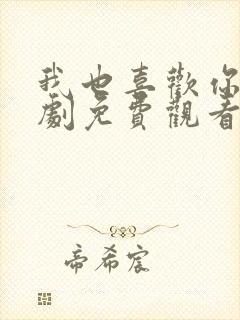 我也喜歡你
劇免費觀看
帝希宸